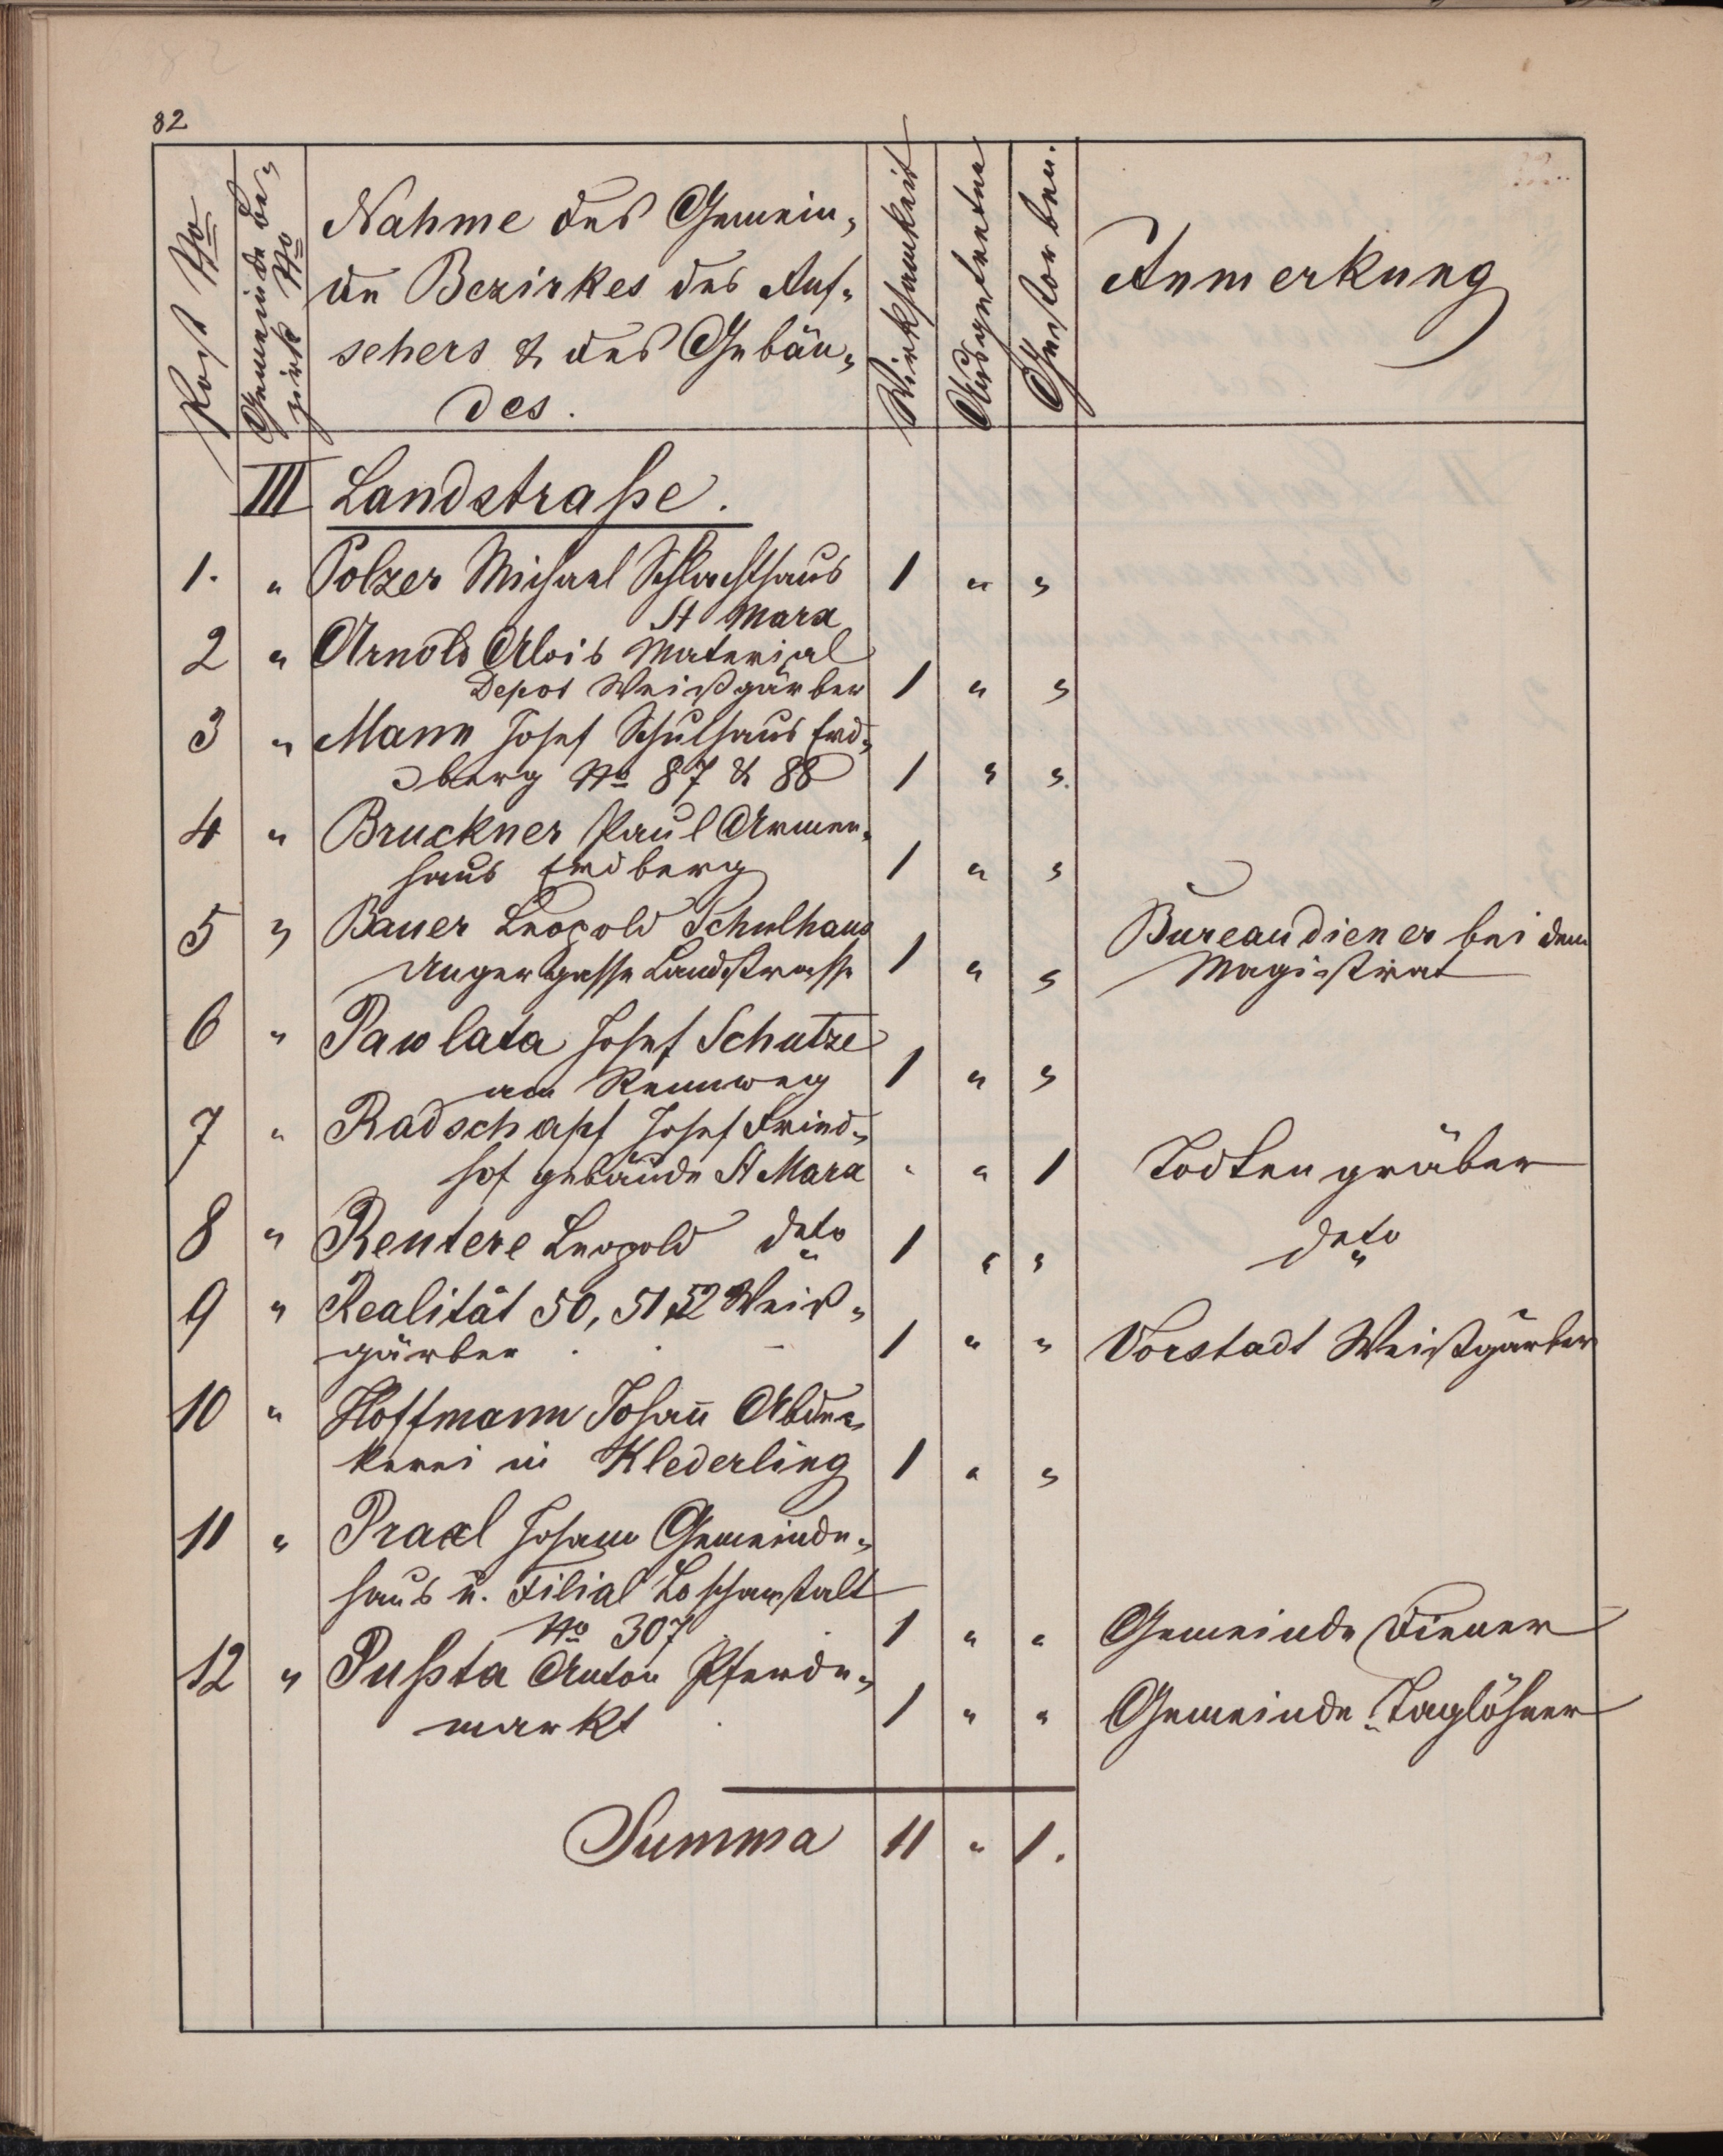 82
Post No
Gemeinde Be-
zirk No
Nahme des Gemein-
de Bezirkes des Auf-
sehers & des Gebäu-
des.
Wirksamkeit
Ausgetretne
Gestorben.
Anmerkung
III Landstraße.
1. " Polzer Michael Schlachthaus 1 " "
St Marx
2 " Arnold Alois Material
Depot Weißgärber 1 " "
3 " Mann Josef Schulhaus Erd-
berg No 87 & 88 1 " "
4 " Bruckner Paul Armen-
haus Erdberg 1 " "
5 " Bauer Leopold Schulhaus Bureaudiener bei dem
Ungergasse Landstrasse 1 " " Magistrat
6 " Pawlata Josef Schutze
am Rennweg 1 " "
7 " Radschapf Josef Fried-
hof gebäude St Marx " " 1 Todtengräber
8 " Rentere Leopold deto 1 " " deto
9 " Realität 50, 51, 52 Weiß-
gärber . . - 1 " " Vorstadt Weißgärber
10 " Hoffmann Johañ Abde-
kerei in Klederling 1 " "
11 " Praxl Johann Gemeinde-
haus u. Filial Löschanstalt
No 307 1 " " Gemeinde Diener
12 " Pußta Anton Pferde-
markt . 1 " " Gemeinde-Taglöhner
Summa 11 " 1.